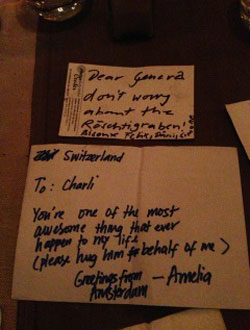 Dear Genova
don't worry
about the
Röschtigraben!
Switzerland
To: Charli
You're one of the most
awesome thing that ever
happen to my life
(please hug him for behalf of me >
Greetings from
Amsterdam
— Amelia